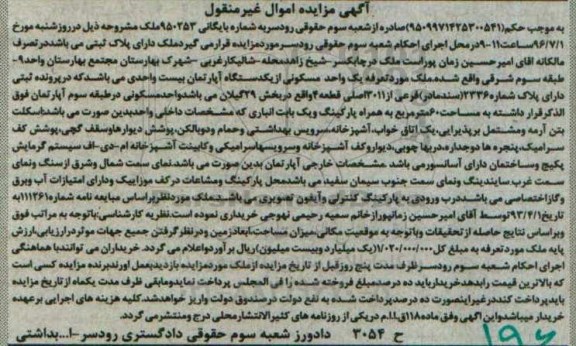 آگهی مزایده اموال غیرمنقول
به موجب حکم(۹۵۰۹۹۷۱۴۲۵۳۰۰۵۴۱)صادره ازشعبه سوم حقوقی رودسربه شماره بایگانی ۹۵۰۲۵۳ملک مشروحه ذیل درروزشنبه مورخ
۹۶/۷/۱ساعت۱۱-۹درمحل اجرای احکام شعبه سوم حقوقی رودسرموردمزایده قرارمی گیردملک دارای پلاک ثبتی می باشددرتصرف
مالکانه آقای امیرحسین زمان پوراست ملک درچابکسر-شیخ زاهدمحله-شالیکارغربی-شهرک بهارستان مجتمع بهارستان واحد۹-
طبقه سوم شرقی واقع شده ملک موردتعرفه یک واحد مسکونی ازیکدستگاه آپارتمان بیست واحدی می باشدکه درپرونده ثبتی
دارای پلاک شماره۲۳۳۶(سندمادر)فرعی از۱۱۰۳اصلی قطعه۴واقع دربخش ۲۹گیلان می باشدواحدمسکونی درطبقه سوم آپارتمان فوق
الذکرقرار داشته به مساحت۶۰مترمربع به همراه پارکینگ ویک بابت انباری که مشخصات داخلی واحدبدین صورت می باشد:اسکلت
بتن آرمه ومشتمل برپذیرایی،یک اتاق خواب،آشپزخانه،سرویس بهداشتی وحمام ودوبالکن،پوشش دیواروسقف گچی،پوشش کف
سرامیک،پنجره ها دوجداره،دربها چوبی،دیواروکف آشپزخانه وسرویسهاسرامیکی وکابینت آشپزخانه ام-دی-اف سیستم گرمایش
پکیج وساختمان دارای آسانسورمی باشد .مشخصات خارجی آپارتمان بدین صورت می باشد.نمای سمت شمال وشرق ازسنگ ونمای
سمت غرب سایندینگ ونمای سمت جنوب سیمان سفید می باشدمحل پارکینگ ومشاعات درکف موزاییک ودارای امتیازات آب وبرق
وگازاختصاصی می باشددرب ورودی به پارکینگ کنترلی وآیفون تصویری می باشد.ملک موردنظربراساس مبایعه نامه شماره۱۱۱۳۶۱به
تاریخ۹۳/۴/۱توسط آقای امیرحسین زمانپورازخانم سمیه رحیمی نهوجی خریداری نموده است.نظریه کارشناسی:باتوجه به مراتب فوق
وبراساس نتایج حاصله از تحقیقات وباتوجه به موقعیت مکانی میزان مساحت،ابعادزمین ودرنظرگرفتن جمیع جهات موثردرارزیابی،ارزش
پایه ملک موردتعرفه به مبلغ کل۱/۰۲۰/۰۰۰/۰۰۰(یک میلیاردوبیست میلیون)ریال برآوردواعلام می گردد. خریداران می توانندبا هماهنگی
اجرای احکام شعبه سوم رودسرظرف مدت پنج روزقبل از تاریخ مزایده ازملک موردمزایده بازدیدبعمل اورندبرنده مزایده کسی است
که بالاترین قیمت رابدهدخریداربایدده درصدمبلغ فروخته شده را فی المجلس پرداخت نمایدومابقی ظرف مدت یکماه از تاریخ مزایده
بایدپرداخت کنددرغیراینصورت ده درصدپرداخت شده به نفع دولت درصندوق دولت واریز خواهدشد.کلیه هزینه های اجرایی برعهده
خریدار میباشدواین آگهی وفق ماده۱۱۸ق.ا.م دریکی از روزنامه های کثیرالانتشارمحلی درج ومنتشرمی گردد.
ح ۳۰۵۴ دادورز شعبه سوم حقوقی دادگستری رودسر-ا...بداشتی
۱۹۶